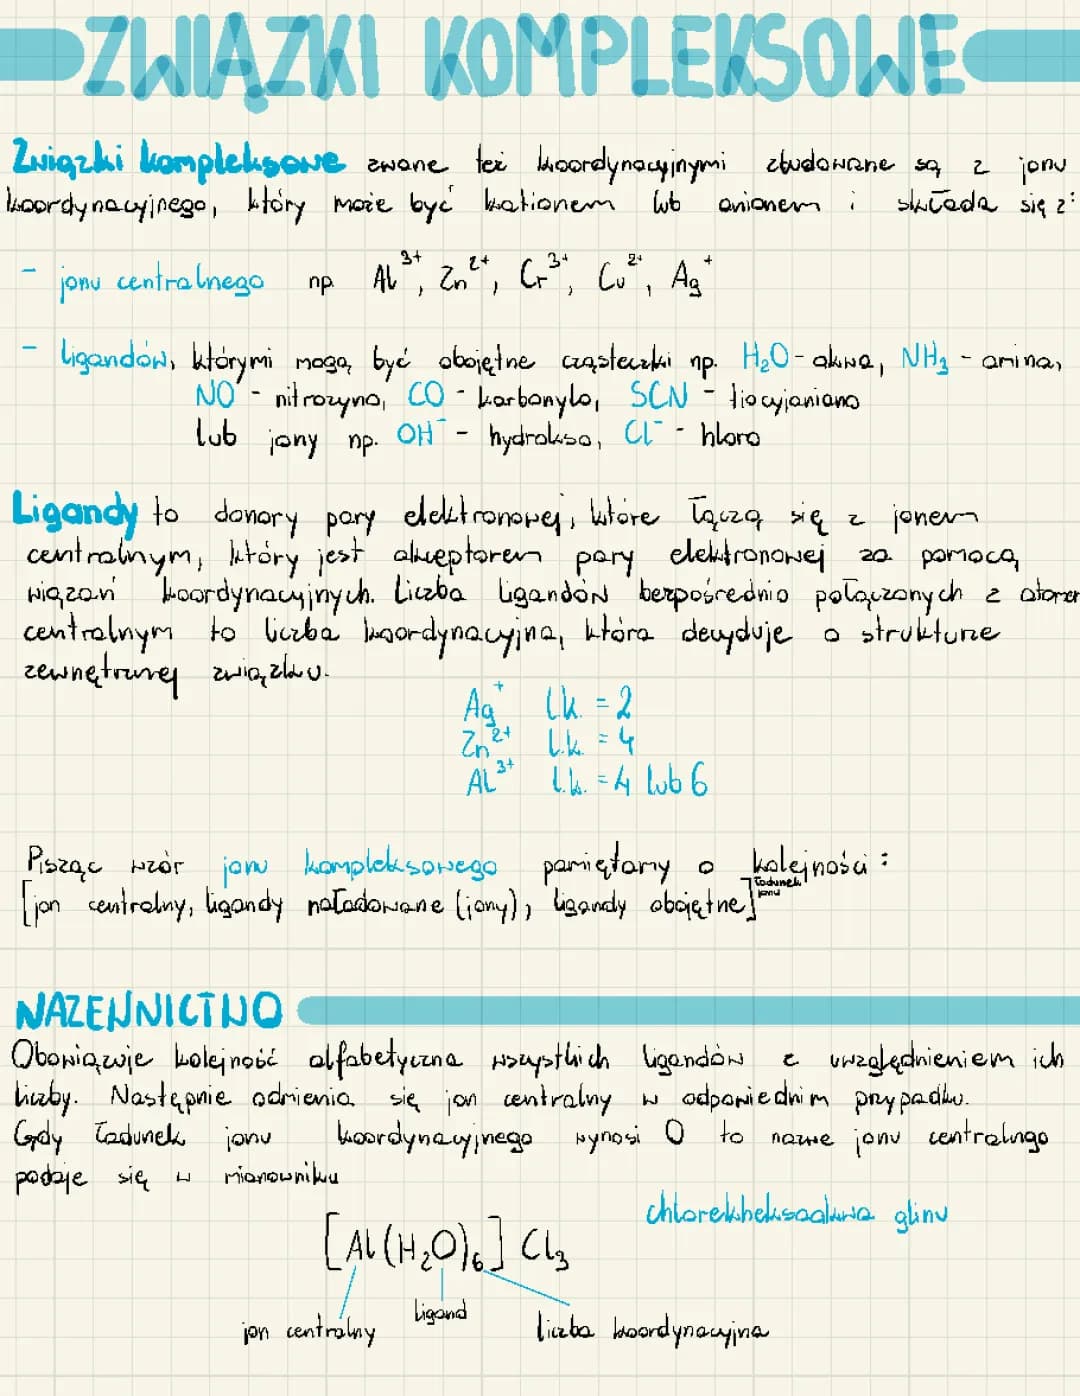 ZWIĄZKI KOMPLEKSOWE
Związki kompleksowe zwane też koordynacyjnymi zbudowane są z jonu
koordynacyjnego, który może być kationem lub anionem i składa się z:
- jonu centralnego np. Al³⁺, Zn²⁺, Cr³⁺, Cu²⁺, Ag⁺
- ligandów, którymi mogą być obojętne cząsteczki np. H₂O - akwa, NH₃ - amina,
NO - nitrozyno, CO - karbonylo, SCN - tiocyjaniano
lub jony np. OH⁻ - hydrokso, Cl⁻ - hloro
Ligandy to donory pary elektronowej, które łączą się z jonem
centralnym, który jest akceptorem pary elektronowej za pomocą
wiązań koordynacyjnych. Liczba ligandów bezpośrednio połączonych z atomem
centralnym to liczba koordynacyjna, która decyduje o strukturze
zewnętrznej związku.
Ag⁺ l.k. = 2
Zn²⁺ l.k. = 4
Al³⁺ l.k. = 4 lub 6
Pisząc wzór jonu kompleksowego pamiętamy o kolejności:
[jon centralny, ligandy naładowane (jony), ligandy obojętne] ładunek jonu
NAZEWNICTWO
Obowiązuje kolejność alfabetyczna wszystkich ligandów z uwzględnieniem ich
liczby. Następnie odmienia się jon centralny w odpowiednim przypadku.
Gdy ładunek jonu koordynacyjnego wynosi 0 to nazwe jonu centralngo
podaje się w mianowniku
chlorekheksaakwa glinu
[Al(H₂O)₆]Cl₃
ligand
jon centralny liczba koordynacyjna